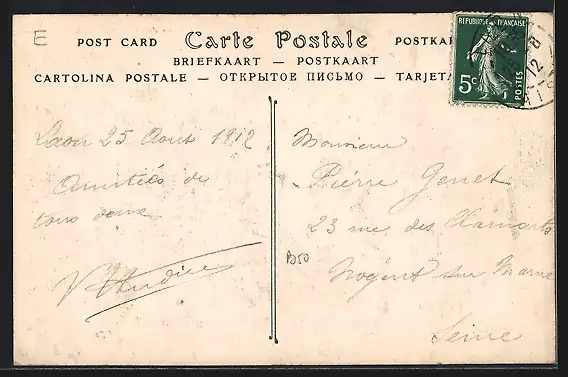 E
POST CARD Carte Postale POSTKA
BRIEFKAART — POSTKAART
CARTOLINA POSTALE — ОТКРЫТОЕ ПИСЬМО — TARJETA
REPUBLIQUE FRANÇAISE
5c
POSTES
8
12
Laon 25 Aout 1912
Amitiés de
tous deux
Monsieur
Pierre Genet
23 rue des Clamarts
Nogent sur Marne
Seine
B50